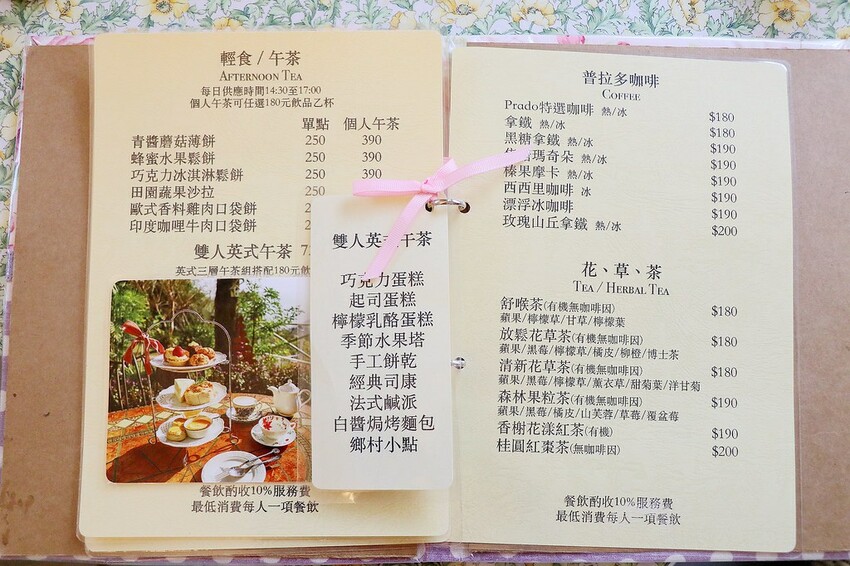 輕食 / 午茶
AFTERNOON TEA
每日供應時間14:30至17:00
個人午茶可任選180元飲品乙杯
單點 個人午茶
青醬蘑菇薄餅 250 390
蜂蜜水果鬆餅 250 390
巧克力冰淇淋鬆餅 250 390
田園蔬果沙拉 250
歐式香料雞肉口袋餅
印度咖哩牛肉口袋餅
雙人英式午茶
英式三層午茶組搭配180元飲
餐飲酌收10%服務費
最低消費每人一項餐飲
雙人英式午茶
巧克力蛋糕
起司蛋糕
檸檬乳酪蛋糕
季節水果塔
手工餅乾
經典司康
法式鹹派
白醬焗烤麵包
鄉村小點
普拉多咖啡
COFFEE
Prado特選咖啡 熱/冰 $180
拿鐵 熱/冰 $180
黑糖拿鐵 熱/冰 $190
瑪奇朵 熱/冰 $190
榛果摩卡 熱/冰 $190
西西里咖啡 冰 $190
漂浮冰咖啡 $190
玫瑰山丘拿鐵 熱/冰 $200
花、草、茶
TEA / HERBAL TEA
舒喉茶(有機無咖啡因) $180
蘋果/檸檬草/甘草/檸檬葉
放鬆花草茶(有機無咖啡因) $180
蘋果/黑莓/檸檬草/橘皮/柳橙/博士茶
清新花草茶(有機無咖啡因) $180
蘋果/黑莓/檸檬草/薰衣草/甜菊葉/洋甘菊
森林果粒茶(有機無咖啡因) $190
蘋果/黑莓/橘皮/山芙蓉/草莓/覆盆莓
香榭花漾紅茶(有機) $190
桂圓紅棗茶(無咖啡因) $200
餐飲酌收10%服務費
最低消費每人一項餐飲